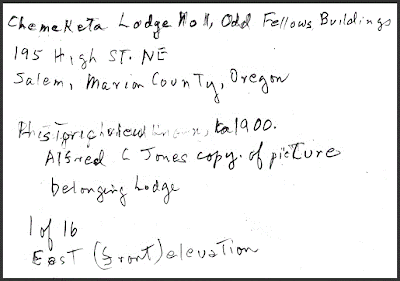 Chemeketa Lodge No 1, Odd Fellows Buildings
195 High ST. NE
Salem, Marion County, Oregon
Historic view, ca 1900.
Alfred C Jones copy of picture
belonging Lodge
1 of 16
East (front) elevation